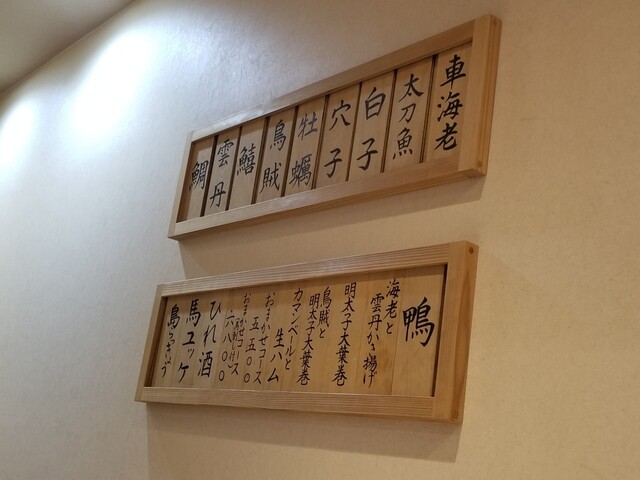 車海老
太刀魚
白子
穴子
牡蠣
烏賊
鱚
雲丹
鯛
鴨
海老と
雲丹かき揚げ
明太子大葉巻
烏賊と
明太子大葉巻
カマンベールと
生ハム
おまかせコース
五、五〇〇
おまかせコース
六、八〇〇
ひれ酒
馬ユッケ
島らっきょう